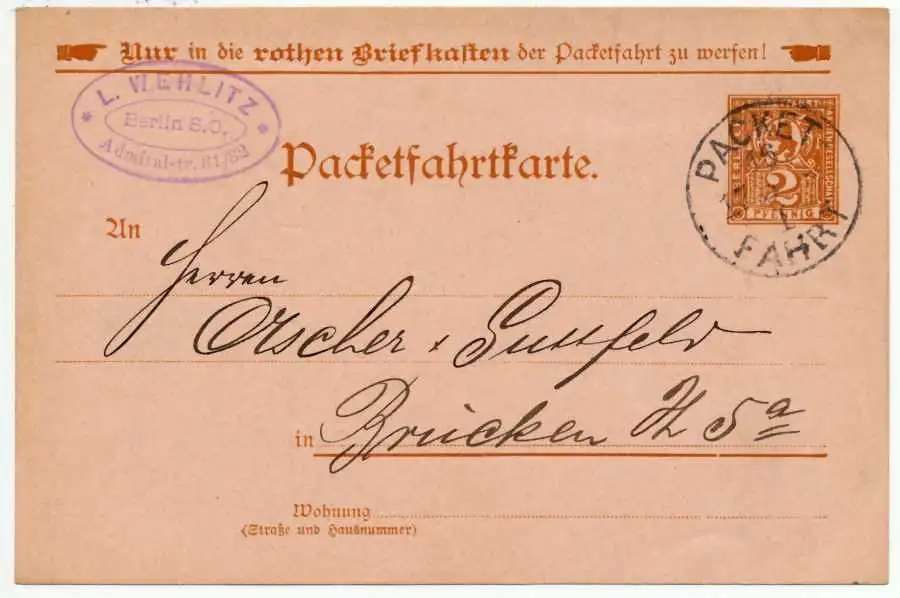 Nur in die rothen Briefkasten der Packetfahrt zu werfen!
L. WEHLITZ
Berlin S.O.
Admiral-str. 31/32
Packetfahrtkarte.
2
PFENNIG
PACKET
FAHRT
An
Herren
&
in Brücken
5a
Wohnung
(Straße und Hausnummer)